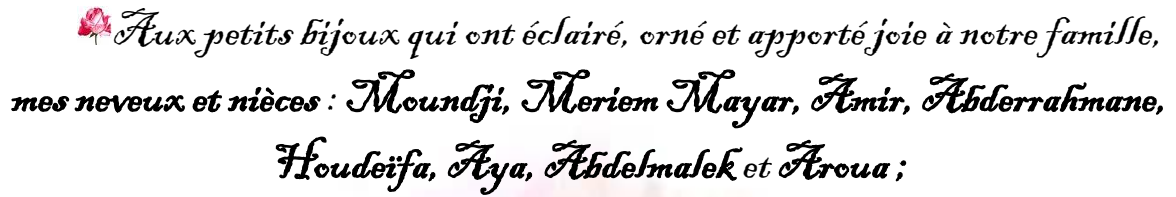 Aux petits bijoux qui ont éclairé, orné et apporté joie à notre famille,
mes neveux et nièces : Moundji, Meriem Mayar, Amir, Abderrahmane,
Houdeïfa, Aya, Abdelmalek et Aroua ;